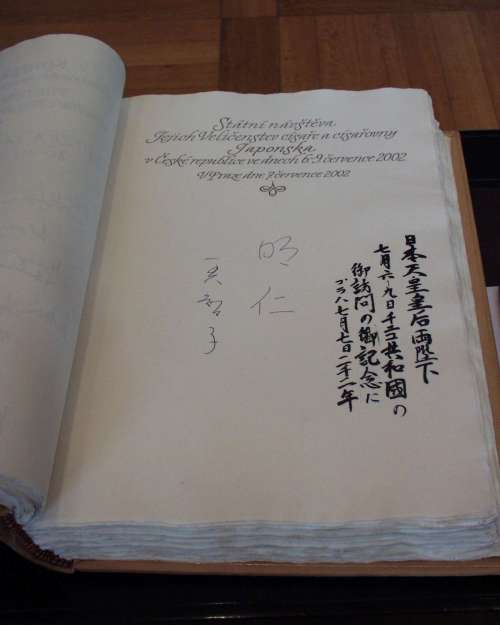 Státní návštěva
Jejich Veličenstev císaře a císařovny
Japonska
v České republice ve dnech 6.-9. července 2002
V Praze dne 7. července 2002
日本天皇皇后両陛下
七月六-九日チェコ共和國の
御訪問の御記念に
プラハ七月七日二千二年
明仁
美智子